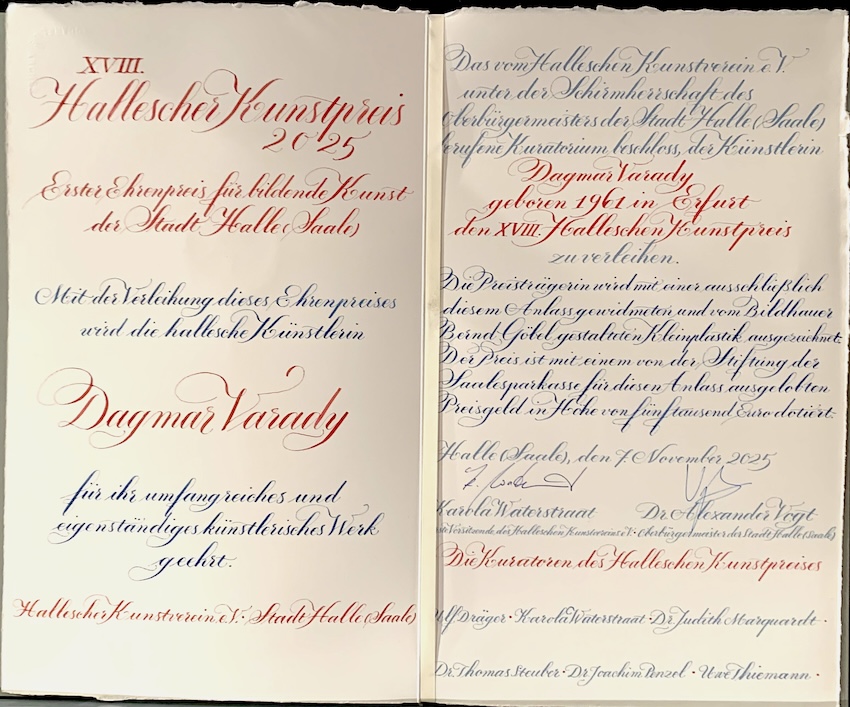 XVIII.
Hallescher Kunstpreis
2025
Erster Ehrenpreis für bildende Kunst
der Stadt Halle (Saale)
Mit der Verleihung dieses Ehrenpreises
wird die hallesche Künstlerin
Dagmar Varady
für ihr umfangreiches und
eigenständiges künstlerisches Werk
geehrt.
Hallescher Kunstverein e.V. · Stadt Halle (Saale)
Das vom Halleschen Kunstverein e.V.
unter der Schirmherrschaft des
Oberbürgermeisters der Stadt Halle (Saale)
berufene Kuratorium beschloss, der Künstlerin
Dagmar Varady
geboren 1961 in Erfurt
den XVIII. Halleschen Kunstpreis
zu verleihen.
Die Preisträgerin wird mit einer ausschließlich
diesem Anlass gewidmeten und vom Bildhauer
Bernd Göbel gestalteten Kleinplastik ausgezeichnet.
Der Preis ist mit einem von der Stiftung der
Saalesparkasse für diesen Anlass ausgelobten
Preisgeld in Höhe von fünftausend Euro dotiert.
Halle (Saale), den 7. November 2025
Karola Waterstraat Dr. Alexander Vogt
Vorsitzende des Halleschen Kunstvereins e.V. · Oberbürgermeister der Stadt Halle (Saale)
Die Kuratoren des Halleschen Kunstpreises
Ulf Dräger · Karola Waterstraat · Dr. Judith Marquardt ·
Dr. Thomas Steuber · Dr. Joachim Penzel · Uwe Thiemann ·